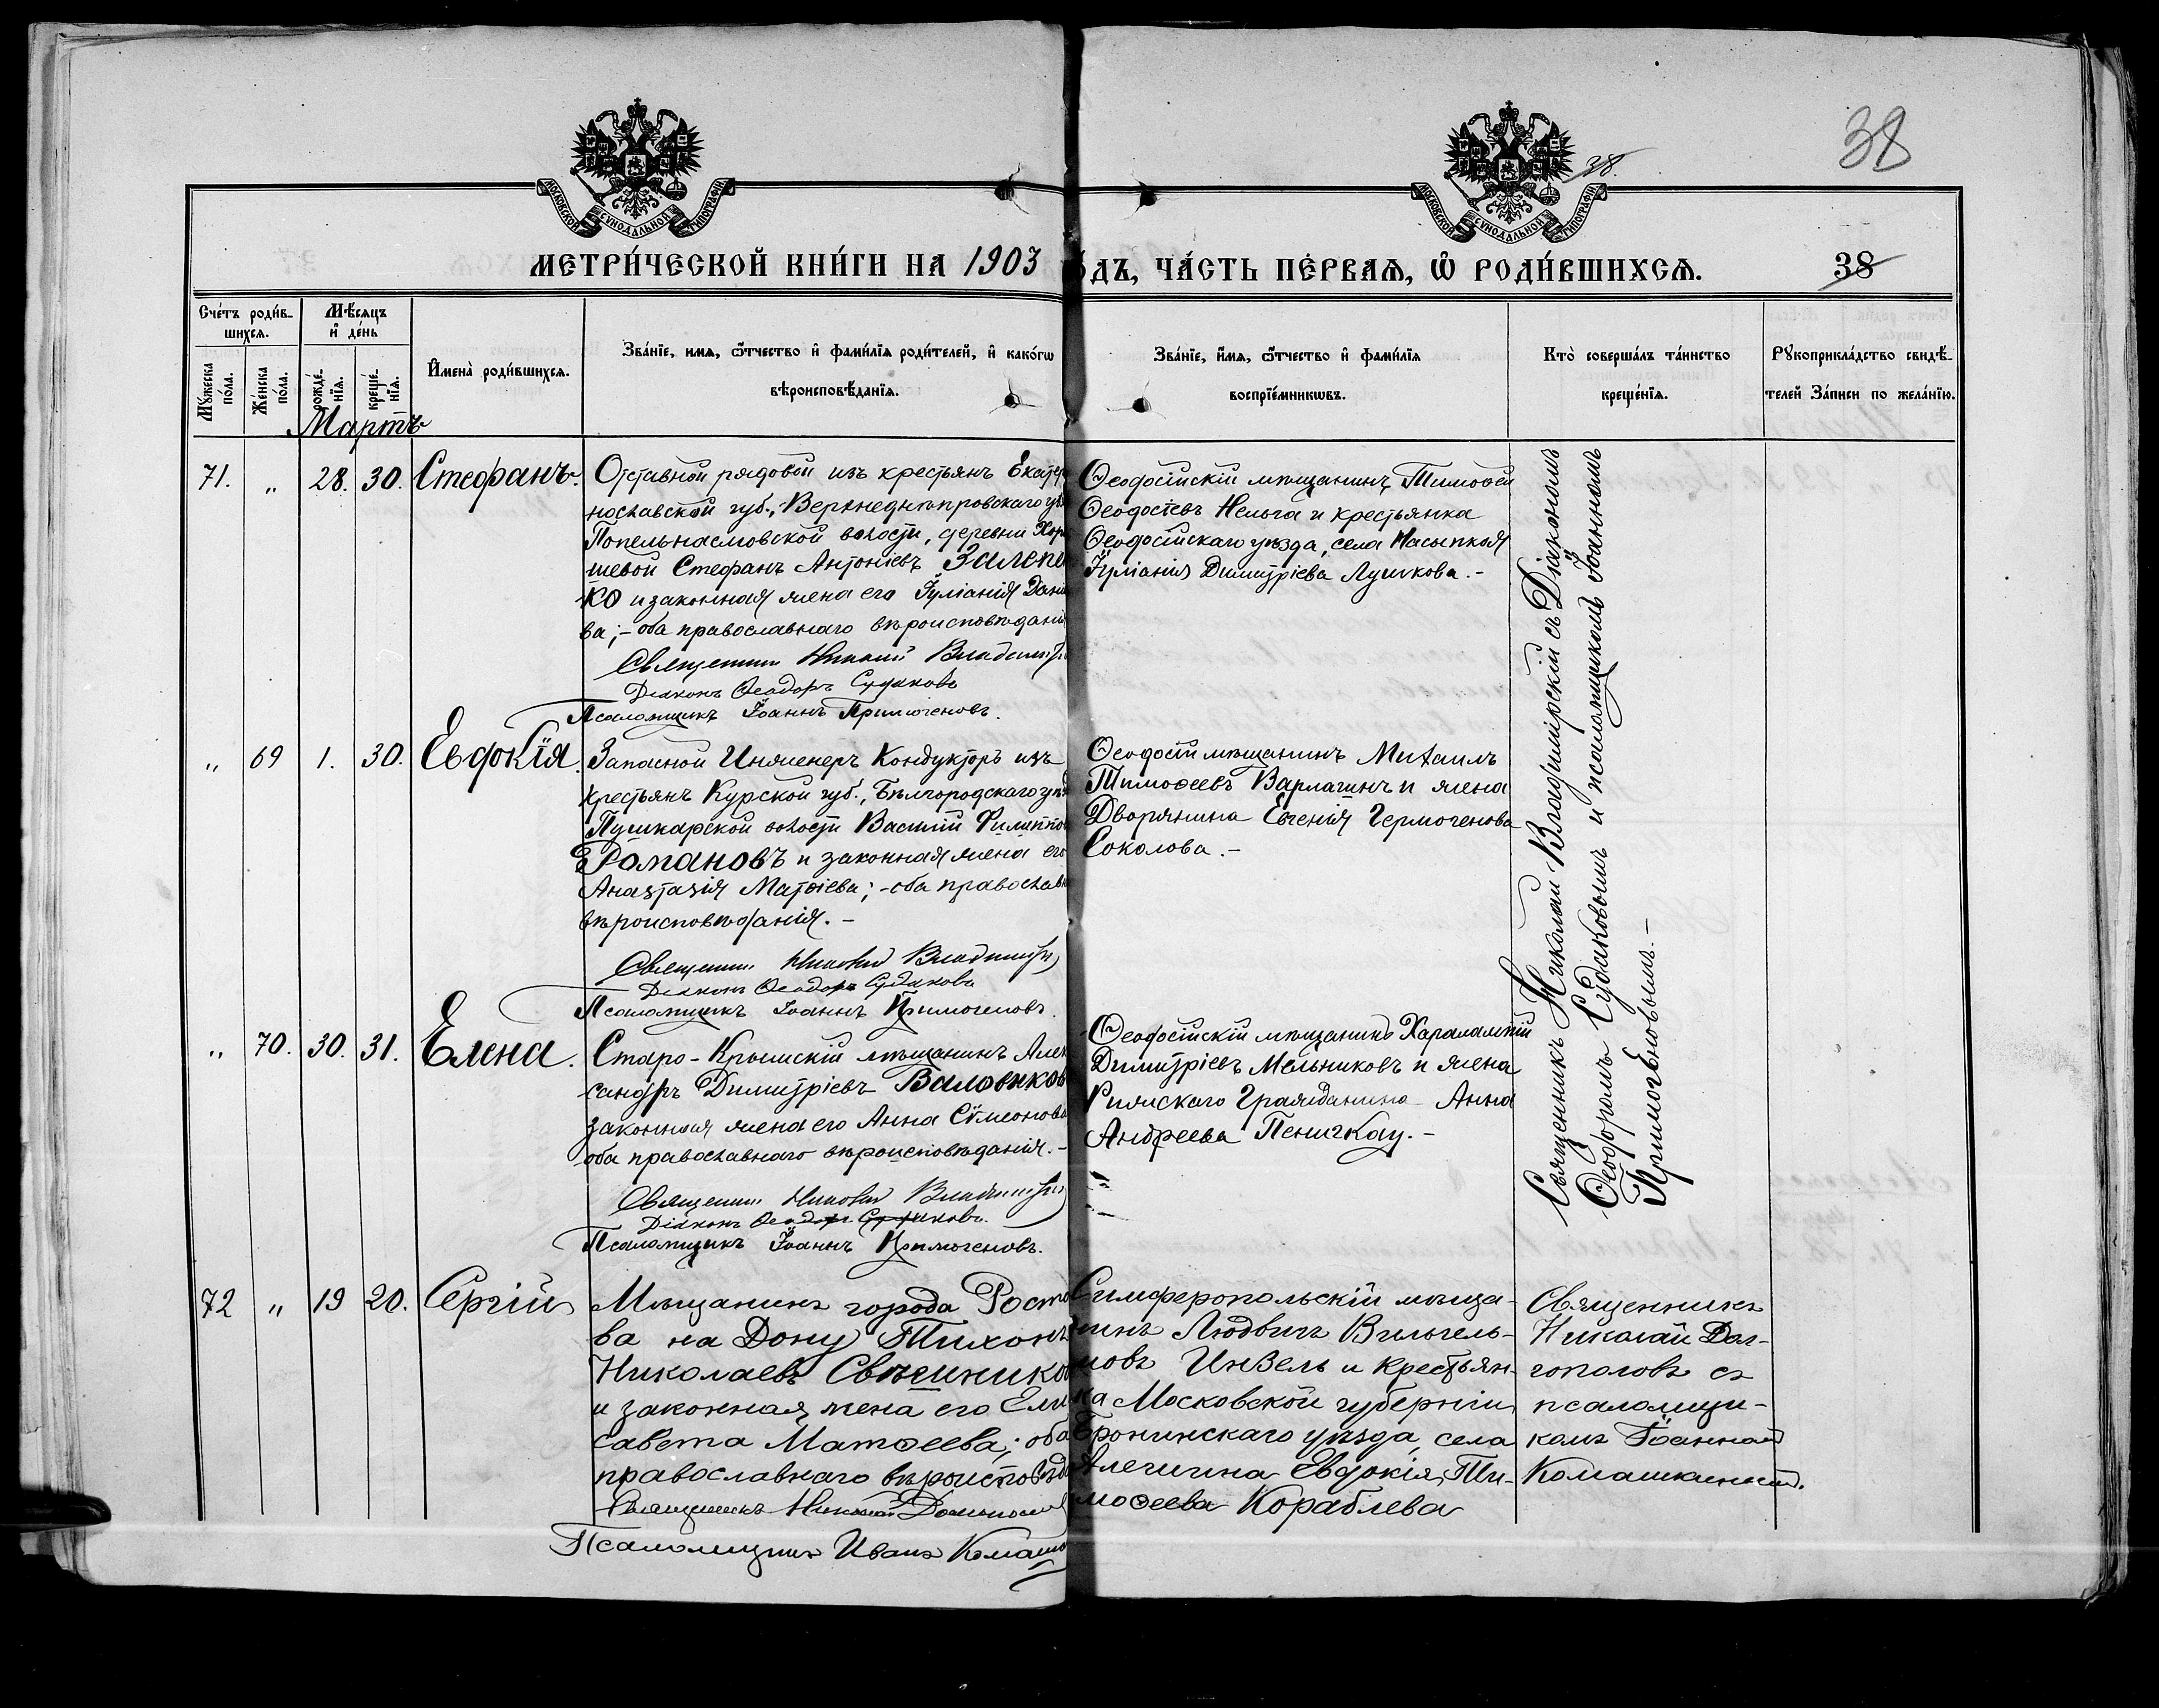 МОСКОВСКОЙ СѴНОДАЛЬНОЙ ТИПОГРАФІИ
МОСКОВСКОЙ СѴНОДАЛЬНОЙ ТИПОГРАФІИ
38.
38
МЕТРИ́ЧЕСКОЙ КНИ́ГИ НА 1903
ДЪ, ЧА́СТЬ ПЕ́РВАЯ, Ѽ РОДИ́ВШИХСЯ.
38
Сче́тъ роди́в-
шихся.
Мѣ́сяцъ
и҆ де́нь
Мꙋ́жеска по́ла.
Же́нска по́ла.
рожде́нїѧ.
креще́нїѧ.
И҆мена̀ роди́вшихся.
Зва́нїе, и҆мѧ, ѻ҆́тчество и҆ фамилїѧ роди́телей, и҆ како́гѡ
вѣроисповѣ́данїѧ.
Зва́нїе, и҆́мѧ, ѻ҆́тчество и҆ фами́лїѧ
воспрїе́мникѡвъ.
Кто̀ совершáлъ та́инство
креще́нїѧ.
Рꙋкоприкла́дство свидѣ́-
телей За́писи по жела́нїю.
Мартъ
71. " 28. 30. Стефанъ.
Отставной рядовой изъ крестьянъ Екатер
нославской губ., Верхнеднѣпровскаго уѣз
Попельнасмовской волости, деревни Хор
шевой Стефанъ Антоніевъ Залеп
ко и законная жена его Іуліанія Дані
ва; – оба православнаго вѣроисповѣданія
Священник Николай Владимірс
Діаконъ Ѳеодоръ Судаковъ
Псаломщикъ Іоаннъ Примогеновъ.
Ѳеодосійскій мѣщанинъ Тимоѳей
Ѳеодосіевъ Нельга и крестьянка
Ѳеодосійскаго уѣзда, села Насыпкоя
Іуліанія Димитріева Лушкова. –
" 69 1. 30. Евдокія.
Запасной Инженеръ Кондукторъ изъ
крестьянъ Курской губ., Бѣлгородскаго уѣзд
Пушкарской волости Василій Филиппов
Романовъ и законная жена его
Анастасія Матѳіева; – оба православн
вѣроисповѣданія. –
Священник Николай Владимірс
Діаконъ Ѳеодоръ Судаковъ
Псаломщикъ Іоаннъ Примогеновъ.
Ѳеодосій мѣщанинъ Михаилъ
Тимоѳеевъ Варлагинъ и жена
Дворянина Евгенія Гермогенова
Соколова. –
" 70. 30. 31. Елена.
Старо-Крымскій мѣщанинъ Алек
сандръ Димитріевъ Валовиков
законная жена его Анна Сѵмеонова
оба православнаго вѣроисповѣданія. –
Священник Николай Владимірс
Діаконъ Ѳеодоръ Судаковъ.
Псаломщикъ Іоаннъ Примогеновъ.
Ѳеодосійскій мѣщанинъ Харалампій
Димитріевъ Мельниковъ и жена
Рижскаго Гражданина Анна
Андреева Пеничкау. –
Священникъ Николай Владимірскій съ Діакономъ
Ѳеодоромъ Судаковымъ и псаломщикомъ Іоанномъ
Примогеновымъ. –
72 " 19 20. Сергій
Мѣщанинъ города Росто
ва на Дону Тихонъ
Николаевъ Свѣчников
и законная жена его Ели
савета Матѳеева; оба
православнаго вѣроисповѣда
Священникъ Николай Долгополов
Псаломщикъ Иванъ Комаш
Симферопольскій мѣща-
нинъ Людвигъ Вильгель-
мовъ Инзель и крестьян-
ка Московской губерніи
Бронинскаго уѣзда, села
Алешина Евдокія Ти-
моѳеева Кораблева
Священникъ
Николай Дол-
гополовъ съ
псаломщи-
комъ Іоанномъ